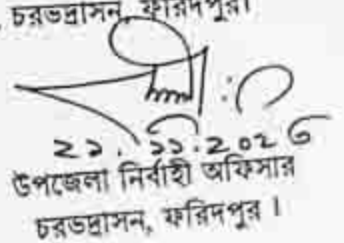 , চরভদ্রাসন, ফরিদপুর।
২১.১১.২০২৫
উপজেলা নির্বাহী অফিসার
চরভদ্রাসন, ফরিদপুর ।